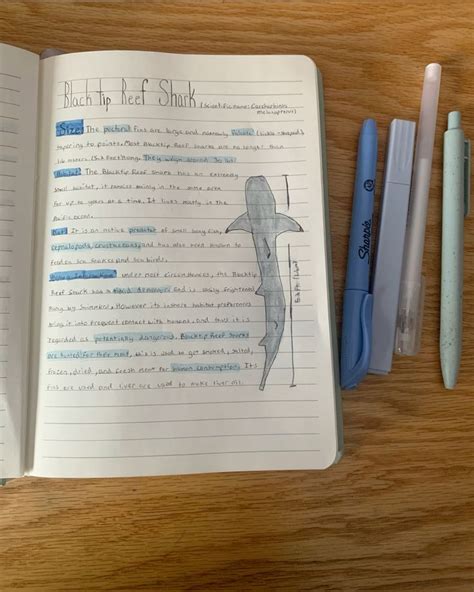 Black Tip Reef Shark (Scientific name: Carcharhinus
melanopterus)
Size: The pectoral fins are large and narrowly falcate (sickle-shaped)
tapering to points. Most Blacktip Reef Sharks are no longer than
1.6 meters (5.2 feet) long. They weigh around 30 lbs
Habitat: The Blacktip Reef Shark has an extremely
small habitat, it remains mainly in the same area
for up to years at a time. It lives mostly in the
Pacific ocean.
Diet: It is an native predator of small bony fish,
cephalopods, crustaceans, and has also been known to
feed on sea snakes and sea birds.
under most circumstances, the Blacktip
Reef Shark has a timid demeanor and is easily frightened
away by swimmers. However its inshore habitat preferences
bring it into frequent contact with humans, and thus it is
regarded as potentially dangerous. Blacktip Reef Sharks
are hunted for their meat, this is used to get smoked, salted,
frozen, dried, and fresh meat for human consumption. Its
fins are used and liver are used to make liver oil.
Sharpie